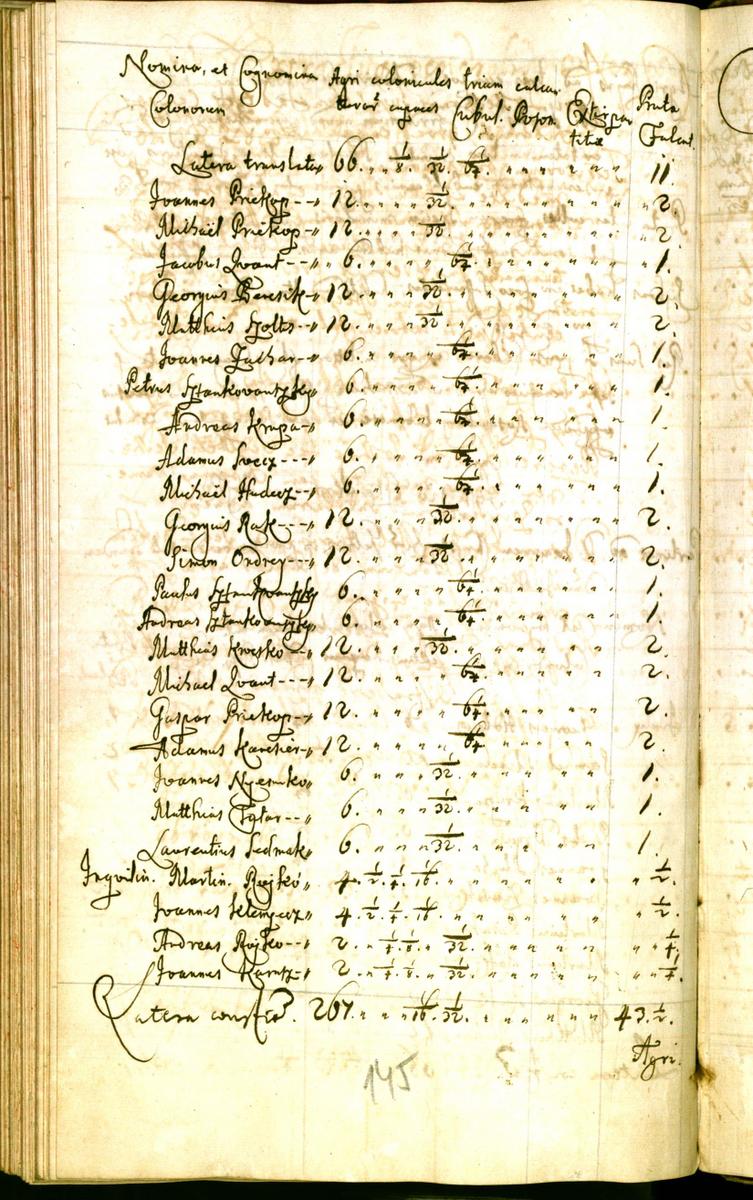 Nomina, et Cognomina Agri colonicales triam calcan
Colonorum teror capaces Cubul. Popon. Extirpa Prata
titiæ Falcat.
Latera translata 66. 1/8 1/32 1/64 11.
Joannes Priekop 12. 1/32 2.
Michaël Priekop 12. 1/32 2.
Jacobus Ivant 6. 1/64 1.
Georgius 12. 1/32 2.
Matthias Szolts 12. 1/32 2.
Joannes Zachar 6. 1/64 1.
Petrus Sztankovantzky 6. 1/64 1.
Andreas Krupa 6. 1/64 1.
Adamus Svecz 6. 1/64 1.
Michaël Hudecz 6. 1/64 1.
Georgius Rak 12. 1/32 2.
Simon Ondrey 12. 1/32 2.
Paulus Sztankovantzky 6. 1/64 1.
Andreas Sztankovantzky 6. 1/64 1.
Matthias 12. 1/32 2.
Michael Ivant 12. 1/64 2.
Gaspar Priekop 12. 1/64 2.
Adamus 12. 1/64 2.
Joannes 6. 1/32 1.
Matthias 6. 1/32 1.
Laurentius Sedmak 6. 1/32 1.
Inquilin. Martin. Rojko 4. 1/2 1/4 1/16 1/2.
Joannes 4. 1/2 1/4 1/16 1/2.
Andreas Rojko 2. 1/4 1/8 1/32 1/4.
Joannes 2. 1/4 1/8 1/32 1/4.
Latera 267. 1/16 1/32 43. 1/2.
Agri
145